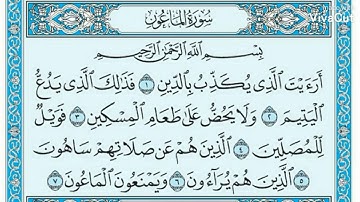 سُورَةُ المَاعُونِ
بِسْمِ ٱللَّهِ ٱلرَّحْمَٰنِ ٱلرَّحِيمِ
أَرَءَيْتَ ٱلَّذِي يُكَذِّبُ بِٱلدِّينِ ١ فَذَٰلِكَ ٱلَّذِي يَدُعُّ
ٱلْيَتِيمَ ٢ وَلَا يَحُضُّ عَلَىٰ طَعَامِ ٱلْمِسْكِينِ ٣ فَوَيْلٌ
لِّلْمُصَلِّينَ ٤ ٱلَّذِينَ هُمْ عَن صَلَاتِهِمْ سَاهُونَ
٥ ٱلَّذِينَ هُمْ يُرَآءُونَ ٦ وَيَمْنَعُونَ ٱلْمَاعُونَ ٧